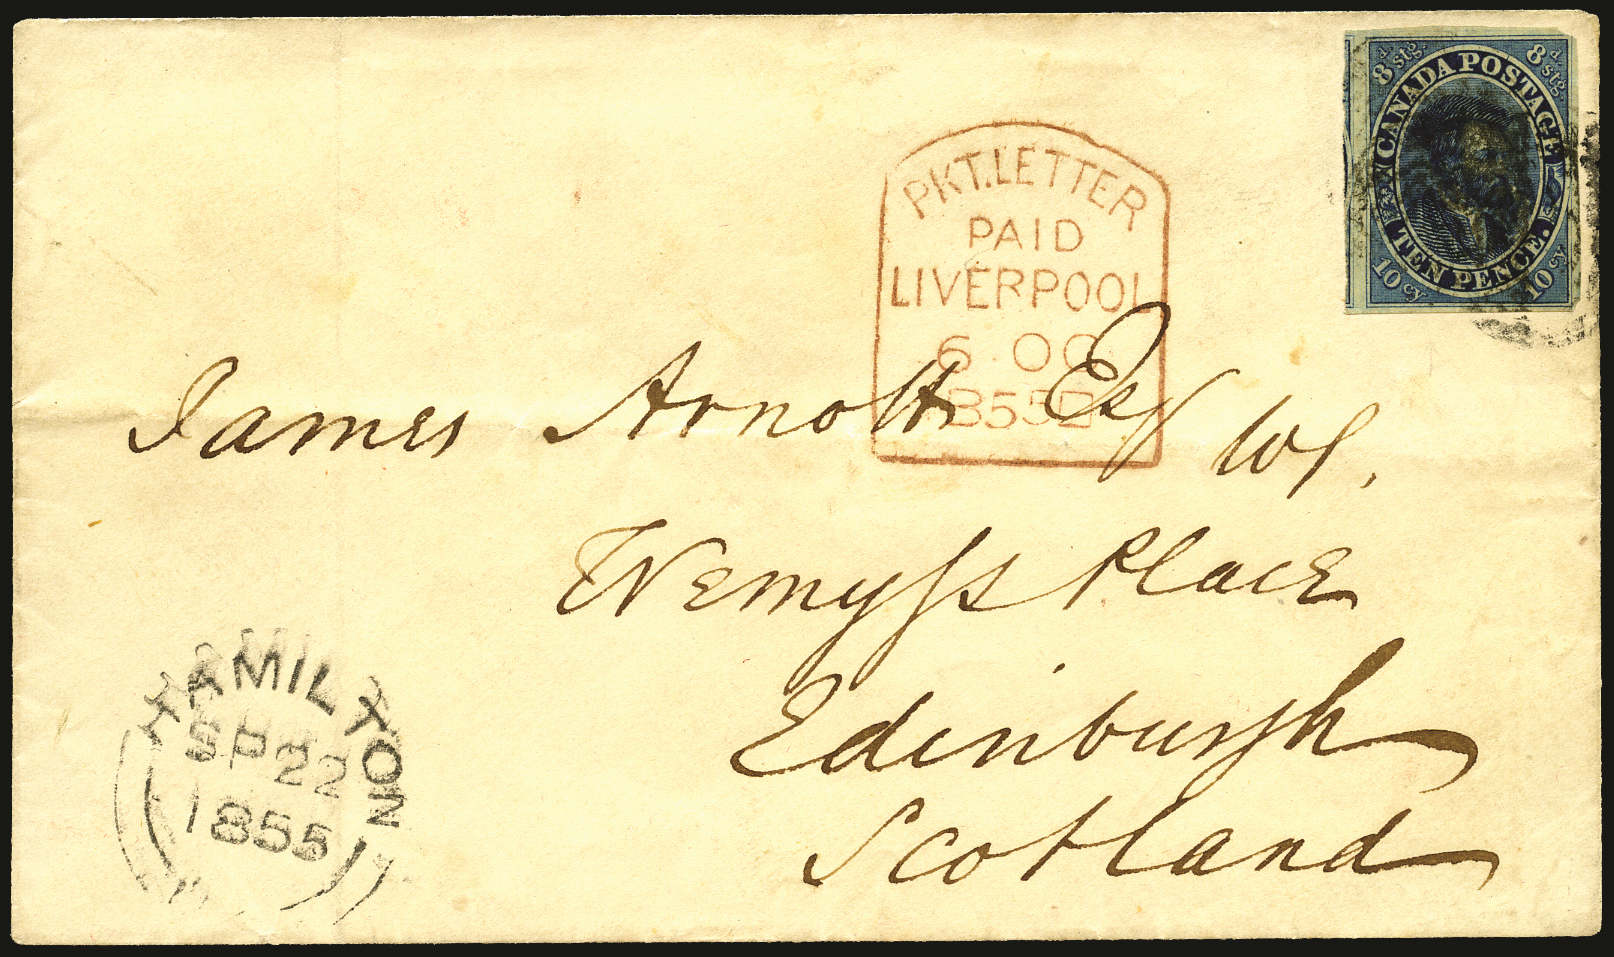 8d stg. 8d stg.
CANADA POSTAGE
TEN PENCE.
10 cy. 10 cy.
PKT. LETTER
PAID
LIVERPOOL
6 OC
1855
James Arnott Esq WS.
Wemyss Place
Edinburgh
Scotland
HAMILTON
SP 22
1855